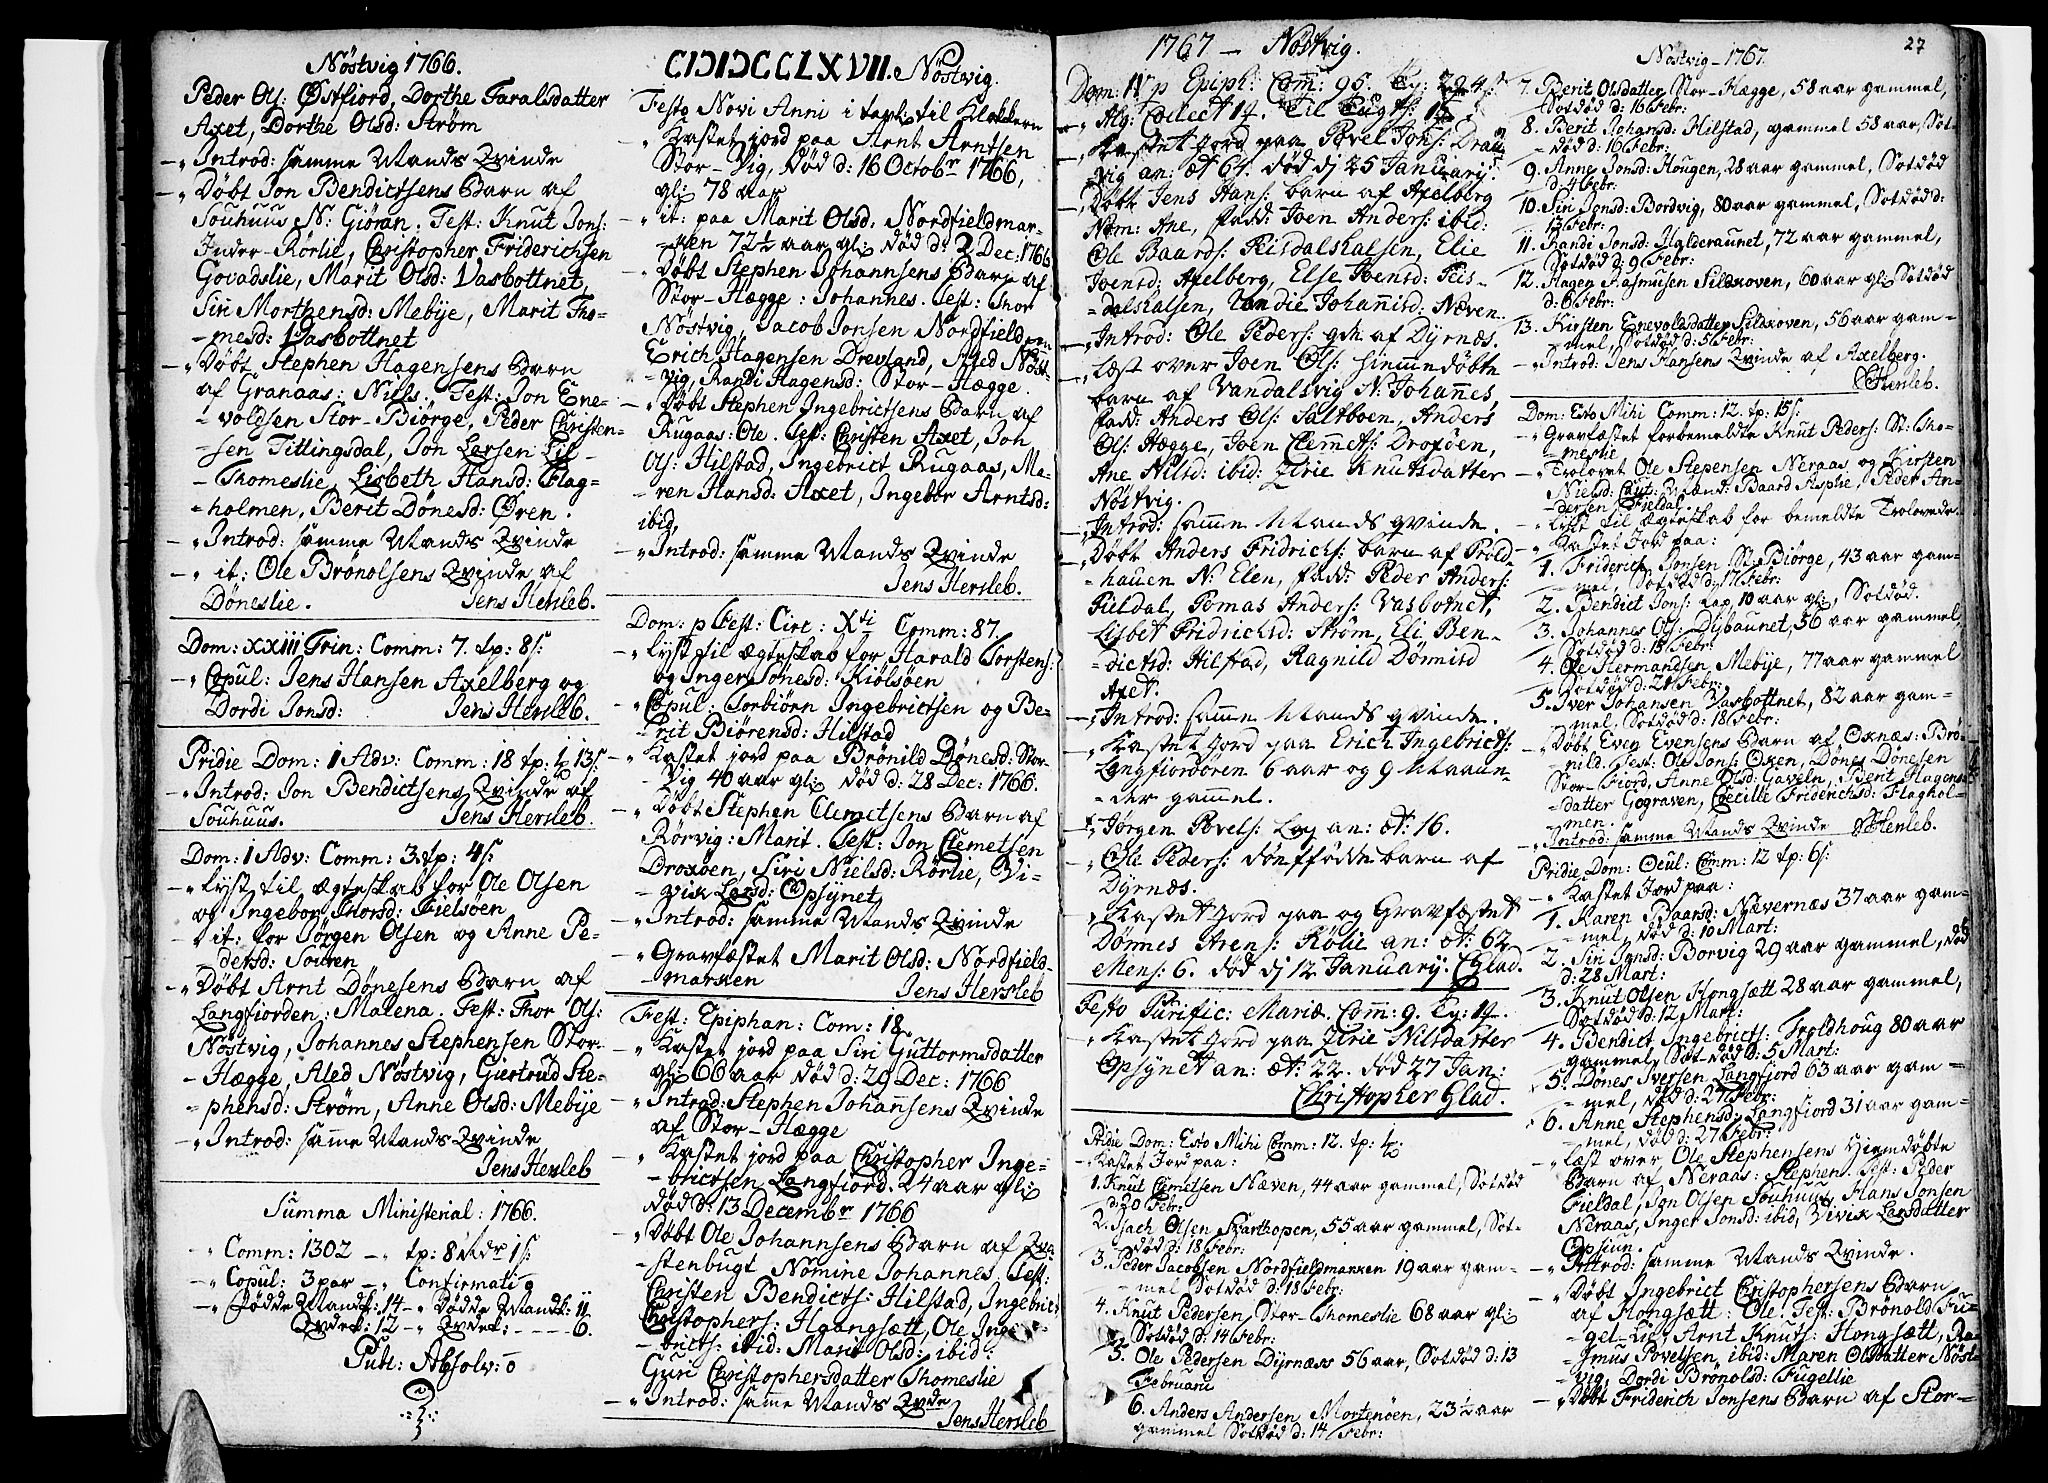 Nöstvig 1766.
Peder Ols: Østfiord, Dorthe Taralsdatter
Axet, Dorthe Olsd: Strøm
Introd: samme Mands Qvinde
Döbt Jon Bendictsens Barn af
Souhuus N: Giöran. Test: Knut Jons:
Inder-Rörlie, Christopher Friderichsen
Govadslie, Marit Olsd: Vasbottnet,
Siri Morthensd: Mebÿe, Marit Tho-
mesd: Vasbottnet
Döbt Stephen Hagensens Barn
af Granaas: Niels. Test: Jon Ene-
voldsen Stor-Biörge, Peder Christen-
sen Tittingsdal, Jon Larsen Lil-
Thomeslie, Lisbeth Hansd: Flag-
holmen, Berit Dönesd: Ören.
Introd: samme Mands Qvinde
it: Ole Brönolsens Qvinde af
Döneslie. Jens Hersleb.
Dom: XXIII Trin: Comm: 7. tp: 8 s:
Copul: Jens Hansen Axelberg og
Dordi Jonsd: Jens Hersleb.
Pridie Dom: 1 Adv: Comm: 18 tp: 13 s:
Introd: Jon Bendictsens Qvinde af
Souhuus. Jens Hersleb.
Dom: 1 Adv: Comm: 3. tp: 4 s:
lyst til ægteskab for Ole Olsen
og Ingebor Thorsd: Fielsöen
it: for Jörgen Olsen og Anne Pe-
dersd: Souren
Döbt Arnt Dönesens Barn af
Langfiorden: Malena. Test: Thor Ols:
Nöstvig, Johannes Stephensen Stor-
Hægge, Aled Nöstvig, Giertrud Ste-
phensd: Ström, Anne Olsd: Mebÿe
Introd: samme Mands Qvinde
Jens Hersleb
Summa Ministerial: 1766.
Comm: 1302 tp: 8 1 s:
Copul: 3 par Confirmati 9
Födde Mandk: 14 Dödde Mandk: 11
Qvdek: 12 Qvdek: 6.
Publ: Absolv: o
CIƆIƆCCLXVII. Nöstvig.
Festo Novi Anni i til Klokkern
Kastet jord paa Arnt Arntsen
Stor-Vig, död d: 16 Octobr 1766,
gl: 78 aar
it: paa Marit Olsd. Nordfieldmar-
ken 72½ aar gl: död d: 2 Dec: 1766
Döbt Stephen Johannsens Barn af
Stor-Hægge: Johannes. Test: Thor
Nöstvig, Jacob Jonsen Nordfield
Erich Hagensen Drevland, Aled Nöst-
vig, Randi Hagensd: Stor-Hægge.
Döbt Stephen Ingebrictsens Barn af
Rugaas: Ole. Test: Christen Axet, Joh
Ols: Hilstad, Ingebrict Rugaas, Ma-
ren Hansd: Axet, Ingebor Arntsd:
ibid,
Introd: samme Mands Qvinde
Jens Hersleb.
Dom: p Fest: Circ: Xti Comm: 87.
lyst til ægteskab for Harald Torstens:
og Inger Jonesd: Kiölsöen
Copul: Torbiörn Ingebrictsen og Be-
rit Biörensd: Hilstad
Kastet jord paa Brönild Dönesd: Stor-
Vig 40 aar gl: död d: 28 Dec: 1766.
Döbt Stephen Clemetsens Barn af
Rörvig: Marit. Test: Jon Clemetsen
Droxöen, Siri Nielsd: Rörlie, Vi-
vik Larsd: Opsÿnet,
Introd: samme Mands Qvinde
Gravfæstet Marit Olsd: Nordfield-
marken Jens Hersleb
Fest: Epiphan: Com: 18.
Kastet jord paa Siri Guttormsdatter
gl: 66 aar död d: 29 Dec: 1766
Introd: Stephen Johannsens Qvinde
af Stor-Hægge
Kastet jord paa Christopher Inge-
brictsen Langfiord. 24 aar gl:
död d: 13 Decembr 1766
Döbt Ole Johannsens Barn af Qva-
stenbugt Nomine Johannes, Test:
Christen Bendicts: Hilstad, Ingebrict
Christophers: Haangsætt, Ole Inge-
bricts: ibid: Marit Olsd: ibid:
Guri Christophersdatter Thomeslie
Introd: samme Mands Qvinde
Jens Hersleb
1767 — Nöstvig.
Dom: IV p Epiph: Com: 95. Ey: 22 4 s:
Alg: Collect 1
Kastet Jord paa Povel Jons: Drau-
vig an: æt 61. död dj 25 Januarij.
Döbt Jens Hans: barn af Axelberg
Nom: Ane, fadd: Joen Anders: ibid:
Ole Baards: Reisdalshalsen, Elie
Joensd: Axelberg, Else Joensd: Reis-
dalshalsen, Vendie Johannisd: Næven.
Introd: Ole Peders: qvde af Dyrnes.
læst over Joen Ols: hiemmedöbte
barn af Vandalsvig N: Johannes,
fadd: Anders Ols: Saltboen, Anders
Ols: Hogge, Joen Clemets: Droxöen,
Ane Nilsd: ibid: Zirie Knutsdatter
Nöstvig.
Introd: samme Mands qvinde.
Döbt Anders Fridrichs: barn af Prold-
hauen N: Elen, fadd: Peder Anders:
Fieldal, Tomas Anders: Vasbotnet,
Lisbet Fridrichsd: Ström, Eli Ben-
dictsd: Hilstad, Ragnild Dönnisd
Axet.
Introd: samme Mands qvinde.
Kastet Jord paa Erich Ingebricts:
Langfiordören 6 aar og 9 Maan-
der gammel.
Jörgen Povels: Lag an: æt: 16.
Ole Peders: dödffödde barn af
Dyrnæs.
Kastet Jord paa og Gravfæstet
Dönnes Arens: Rölie an: æt: 62
Mens: 6. död dj 12 January. CGlad.
Festo Purific: Mariæ. Com: 9. Ey: 1
Kastet Jord paa Zirie Nilsdatter
Opsynet an: æt: 22. död 27 Jan:
Christopher Glad.
Pridie Dom: Esto Mihi Comm: 12. tp: ½.
Kastet Jord paa:
1. Knut Clemetsen Næven, 44 aar gammel, Sotdöd
d: 20 Febr:
2. Isach Olsen Skartkopen, 55 aar gammel, Sot-
död d: 18 Febr:
3. Peder Jacobsen Nordfieldmarken 19 aar gam-
mel Sotdöd d: 18 Febr:
4. Knut Pedersen, Stor-Thomeslie 68 aar gl:
Sotdöd d: 14 Febr:
5. Ole Pedersen Dyrnæss 56 aar, Sotdöd d: 13
Februarii
6. Anders Andersen Mortenöen, 23½ aar
gammel Sotdöd d: 14 Febr:
Nöstvig — 1767. 27
7. Berit Olsdatter Stor-Hægge, 58 aar gammel,
Sotdöd d: 16 Febr:
8. Berit Johansd: Hilstad, gammel 58 aar, Sot-
död d: 16 Febr:
9. Anne Jonsd: Hougen, 28 aar gammel, Sotdöd
d: 4 Febr:
10. Siri Jonsd: Bordvig, 80 aar gammel, Sotdöd d:
13 Febr:
11. Randi Jonsd: Halderaunet, 72 aar gammel,
Sotdöd d: 9 Febr:
12. Hagen Rasmusen Sildxoven, 60 aar gl: Sotdöd
d: 6 Febr:
13. Kirsten Enevoldsdatter Sildxoven, 56 aar gam-
mel, Sotdöd d: 5 Febr:
Introd: Jens Hansens Qvinde af Axelberg.
JHersleb.
Dom: Esto Mihi Comm: 12. tp: 15 s:
Gravfæstet forbemeldte Knut Peders: St: Tho-
meslie
Trolovet Ole Stepensen Neraas og Kirsten
Nielsd: Caut: Roland: Baard Asphe, Peder An-
dersen Fieldal.
Lyst til ægteskab for bemeldte Trolovede.
Kastet Jord paa:
1. Friderich Jonsen St: Biörge, 43 aar gam-
mel, Sotdöd d: 17 Febr:
2. Bendict Jons: Lap, 10 aar gl:, Sotdöd.
3. Johannes Ols: Dÿbaunet, 56 aar gammel,
Sotdöd d: 18 Febr:
4. Ole Hermandsen Mebÿe, 77 aar gammel
Sotdöd d: 21 Febr:
5. Iver Johansen Vasbottnet, 82 aar gam-
mel. Sotdöd d: 18 Febr:
Döbt Even Evensens Barn af Oxnæs: Brö-
nild. Test: Ole Jons: Oxen, Dönes Dönesen
Stor-Fiord, Anne Olsd: Gaveln, Berit Hagens-
datter Gograven, Cecille Friderichsd: Flaghol-
men.
Introd: samme Mands Qvinde JHersleb.
Pridie Dom: Ocul: Comm: 12 tp: 6 s:
Kastet Jord paa:
1. Karen Baarsd: Nævernæs 37 aar gam-
mel, död d: 10 Mart:
2. Siri Jonsd: Borvig 29 aar gammel, död
d: 28 Mart:
3. Knut Olsen Hongsætt 28 aar gammel,
Sotdöd d: 12 Mart:
4. Bendict Ingebricts: Troldhoug 80 aar
gammel, Sot-död d: 5 Mart:
5. Dönes Iversen Langfjord 63 aar gam-
mel, död d: 27 Febr:
6. Anne Stephensd: Langfjord 31 aar gam-
mel, död d: 27 Febr:
Læst over Ole Stephensens Hiemdöbte
Barn af Neraas: Stephen. Test: Peder
Fieldal, Jon Olsen Souhuus, Hans Jonsen
Neraas, Inger Jonsd: ibid, Vivik Larsdatter
Opsiun.
Introd: samme Mands Qvinde.
Döbt Ingebrict Christophersens Barn
af Hongsætt: Ole. Test: Brönold Fu-
gel-Lie, Arnt Knuts: Hongsætt, Ra-
smus Povelsen, ibid: Maren Olsdatter Nöst-
vig, Dordi Brönolsd: Fugellie
Döbt Friderich Jonsens Barn af Stor-